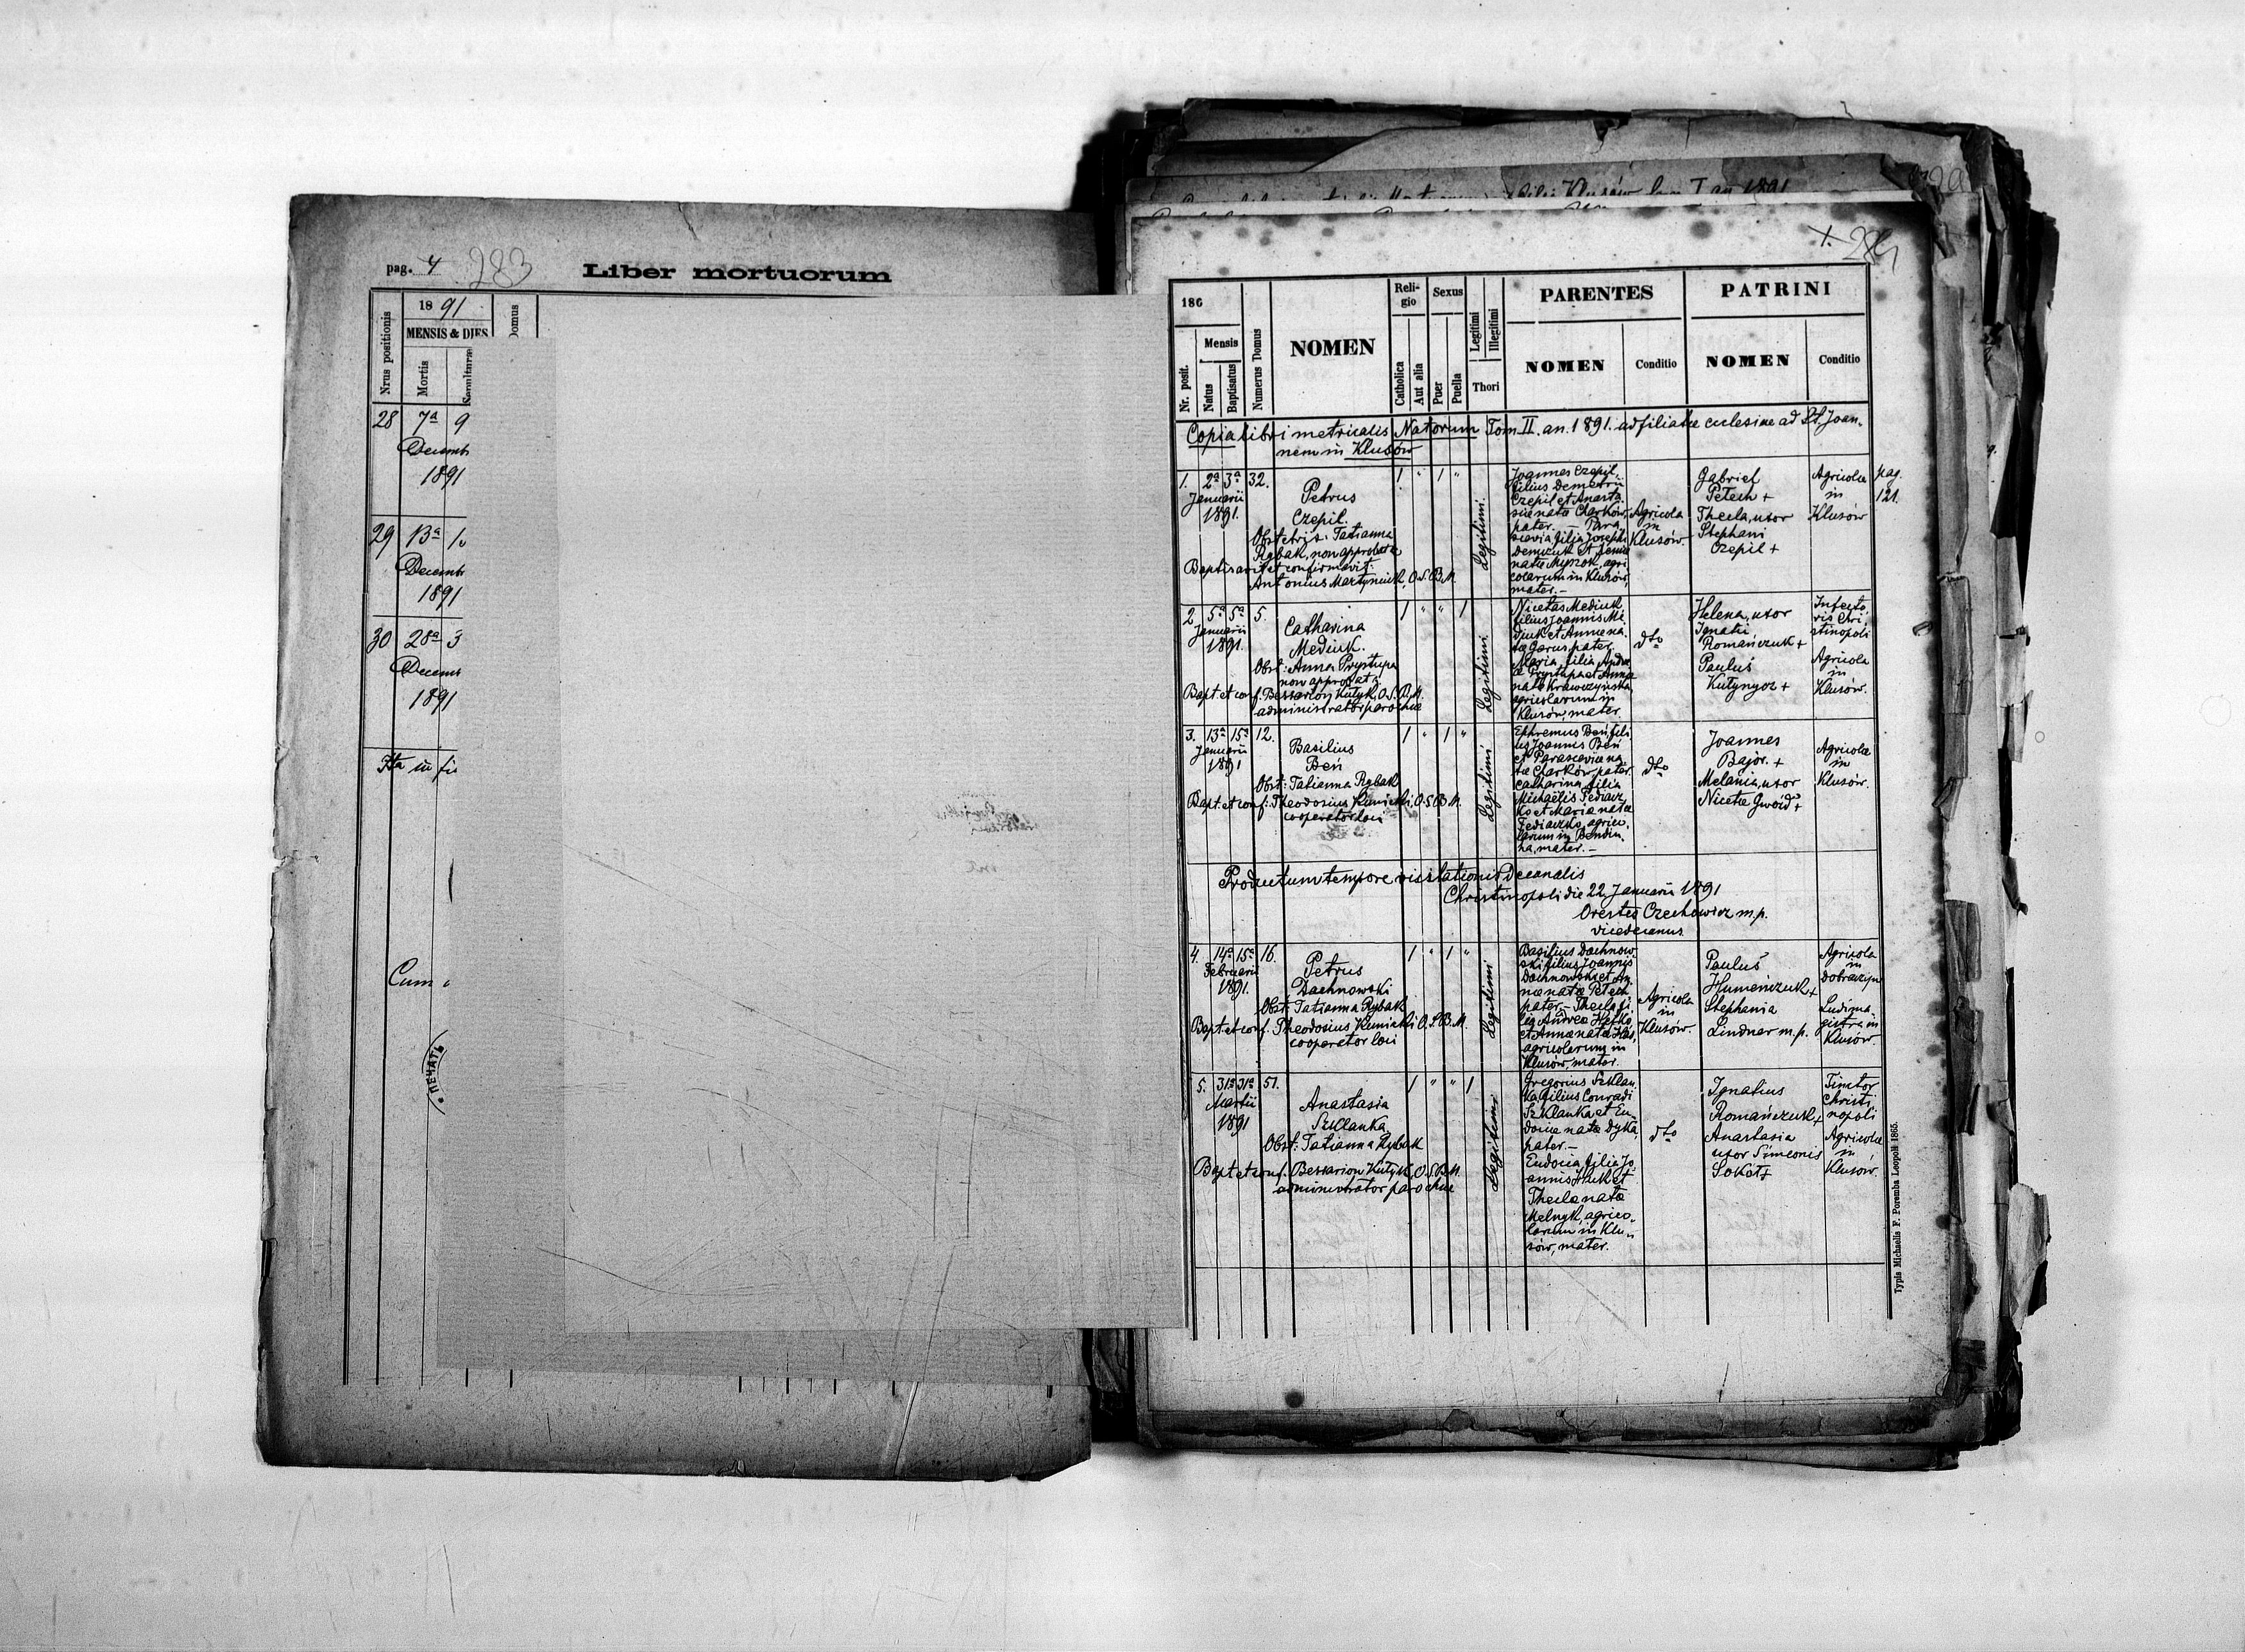 pag. 4 283 Liber mortuorum
Nrus positionis
18 91
MENSIS & DIES
Mortis
Domus
28 7a 9
Decemb
1891
29 13a
Decemb
1891
30 28a 3
Decemb
1891
Ita in fi
Cum
ПЕЧАТЬ
1. 284
186
Nr. posit.
Mensis
Natus
Baptisatus
Numerus Domus
NOMEN
Religio
Catholica
Aut alia
Sexus
Puer
Puella
Legitimi
Illegitimi
Thori
PARENTES
NOMEN
Conditio
PATRINI
NOMEN
Conditio
Copia libri metricalis Natorum Tom II. an. 1891. ad filialae ecclesiae ad St. Joan-
nem in Klusów
1. 2a 3a 32.
Januarii
1891.
Petrus
Czepil.
Obstetrix: Tatianna
Rybak, non approbata
Baptisavit et confirmavit:
Antonius Martyniuk, O. S. B. M.
1 " 1 "
Legitimi.
Joannes Czepil,
filius Demetrii
Czepil et Anasta-
siae nata Charków,
pater. — Para-
scevia, filia Josephi
Demczuk et
natae Myszok, agri-
colarum in Klusów,
mater. —
Agricola
in
Klusów
Gabriel
Petech +
Thecla, uxor
Stephani
Czepil +
Agricolae
in
Klusów
pag.
121.
2 5a 5a 5.
Januarii
1891.
Catharina
Mediuk.
Obst: Anna Prystupa
non approbata
Bapt. et conf. Bessarion Kutyk, O. S. B. M.
administrator parochiae
1 " " 1
Legitimi
Nicetas Mediuk
filius Joannis Me-
diuk et Annae na-
tae Garus pater.
Maria, filia Andre-
ae Prystupa et Anna
nata Krawczynska,
agricolarum in
Klusów, mater.
dto
Helena, uxor
Ignatii
Romańczuk +
Paulus
Kutynycz +
Infecto-
ris Chri-
stinopoli
Agricola
in
Klusów.
3. 13a 15a 12.
Januarii
1891
Basilius
Beń
Obst: Tatianna Rybak
Bapt. et conf: Theodosius Kunicki, O. S. B. M.
cooperator loci
1 " 1 "
Legitimi
Ephremus Beń fili-
us Joannis Beń
et Parasceviae na-
tae Charków, pater.
Catharina, filia
Michaëlis Fediacz-
ko et Maria nata
Fediaczko, agrico-
larum in Bendiu-
ha, mater. —
dto
Joannes
Bajor. +
Melania, uxor
Nicetae Gwozd +
Agricolae
in
Klusów.
Productum tempore visitationis Decanalis
Christinopoli die 22. Januarii 1891
Orestes Czechowicz m.p.
vicedecanus
4. 14a 15a 16.
Februarii
1891.
Petrus
Dachnowski
Obst: Tatianna Rybak
Bapt. et conf. Theodosius Kunicki O. S. B. M.
cooperator loci
1 " 1 "
Legitimi
Basilius Dachnow-
ski, filius Joannis
Dachnowski et An-
nae nata Petech
pater. — Thecla fi-
lia Andreae
et Anna nata
agricolarum in
Klusów, mater.
Agricola
in
Klusów.
Paulus
Humeńczuk +
Stephania
Lindner m.p.
Agricola
in
Dobraczyn
Ludima-
gistra in
Klusów.
5. 31a 31a 51.
Martii
1891
Anastasia
Szklanka
Obst: Tatianna Rybak
Bapt et conf. Bessarion Kutyk, O. S. B. M.
administrator parochiae
1 " " 1
Legitimi
Gregorius Szklan-
ka filius Conradi
Szklanka et Eu-
docia nata Dyka,
pater. —
Eudocia, filia Jo-
annis Huk et
Thecla nata
Melnyk, agrico-
larum in Klu-
sów, mater.
dto
Ignatius
Romańczuk +
Anastasia
uxor Simeonis
Sokot +
Tinctor
Christi-
nopoli
Agricolae
in
Klusów.
Typis Michaelis F. Poremba Leopoli 1865.